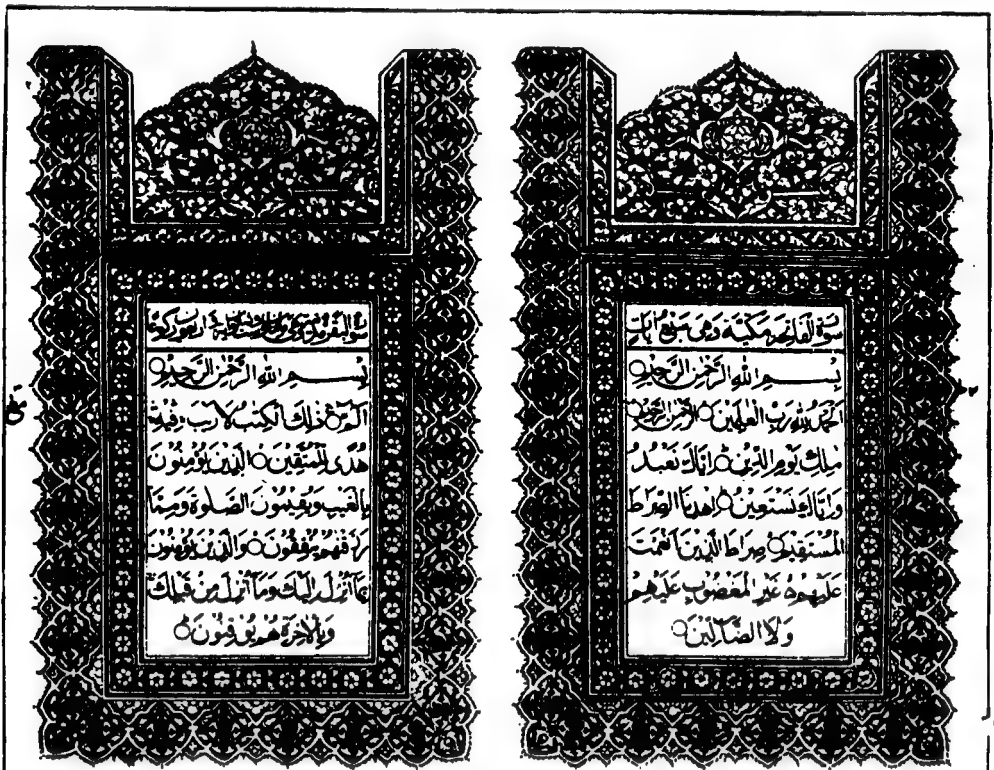 سورة الفاتحة مكية وهى سبع ايات
بِسْمِ اللهِ الرَّحْمٰنِ الرَّحِيْمِ○
اَلْحَمْدُ لِلّٰهِ رَبِّ الْعٰلَمِيْنَ○ الرَّحْمٰنِ الرَّحِيْمِ○
مٰلِكِ يَوْمِ الدِّيْنِ○ اِيَّاكَ نَعْبُدُ
وَاِيَّاكَ نَسْتَعِيْنُ○ اِهْدِنَا الصِّرَاطَ
الْمُسْتَقِيْمَ○ صِرَاطَ الَّذِيْنَ اَنْعَمْتَ
عَلَيْهِمْ○ غَيْرِ الْمَغْضُوْبِ عَلَيْهِمْ
وَلَا الضَّآلِّيْنَ○
سورة البقرة
بِسْمِ اللهِ الرَّحْمٰنِ الرَّحِيْمِ○
الٓمّٓ○ ذٰلِكَ الْكِتٰبُ لَا رَيْبَ فِيْهِ
هُدًى لِّلْمُتَّقِيْنَ○ الَّذِيْنَ يُؤْمِنُوْنَ
بِالْغَيْبِ وَيُقِيْمُوْنَ الصَّلٰوةَ وَمِمَّا
رَزَقْنٰهُمْ يُنْفِقُوْنَ○ وَالَّذِيْنَ يُؤْمِنُوْنَ
بِمَآ اُنْزِلَ اِلَيْكَ وَمَآ اُنْزِلَ مِنْ قَبْلِكَ
وَبِالْاٰخِرَةِ هُمْ يُوْقِنُوْنَ○